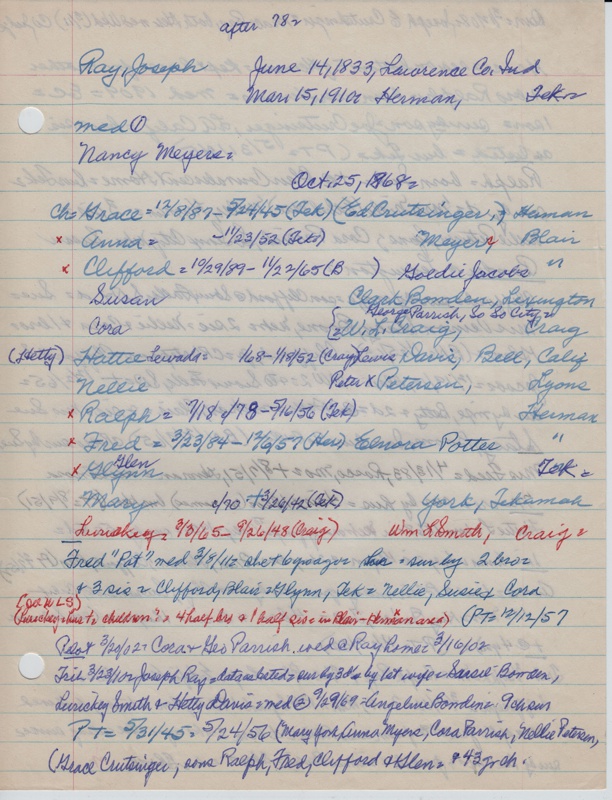 after 78=
Ray, Joseph June 14, 1833, Lawrence Co. Ind
Mar. 15, 1910= Herman, Tek=
med ①
Nancy Meyers=
Oct. 25, 1868=
ch= Grace = 12/8/87 - 5/24/45 (Tek) (Ed Crutsinger, ) Herman
x Anna = -11/23/52 (Tek) Meyers Blair
x Clifford = 10/29/89 - 11/22/65 (B ) Goldie Jacobs "
Susan Clark Bowden, Lexington
George Parrish, So So City=
Cora {=W. L. Craig, Craig
(Hetty) Hattie Lewada= 1/68 - 1/18/52 (Craig) Lewis Davis, Bell, Calif
Nellie Peter X Petersen, Lyons
x Ralph = 7/18 c/78 - 5/16/56 (Tek) Herman
x Fred = 3/23/84 - 12/6/57 (Her) Elenora Potter "
Glen
x Glynn Tek=
Mary c/70 + 3/26/42 (Tek) York, Tekamah
Leuishey = 3/3/65 - 9/26/48 (Craig) Wm L Smith, Craig=
Fred "Pat" med 3/8/11= she + 6 = sur by 2 bro=
& 3 sis = Clifford, Blair = Glynn, Tek = Nellie, Susie & Cora
(Leuishey = hus + children? x 4 half bro & 1 half sis = in Blair-Herman area) (PT= 12/12/57
Pilot 3/20/02= Cora & Geo Parrish, wed @ Ray home= 3/16/02
Trib 3/23/10= Joseph Ray = data as listed = sur by 3 ds by 1st wife = Sarsie Bowden,
Leuishey Smith & Hetty Davis = med ② 9/29/69 = Angeline Bowden = 9 ch sur
PT= 5/31/45= 5/24/56 (Mary York, Anna Myers, Cora Parrish, Nellie Petersen,
(Grace Crutsinger, sons Ralph, Fred, Clifford & Glen = + 43 gr ch.